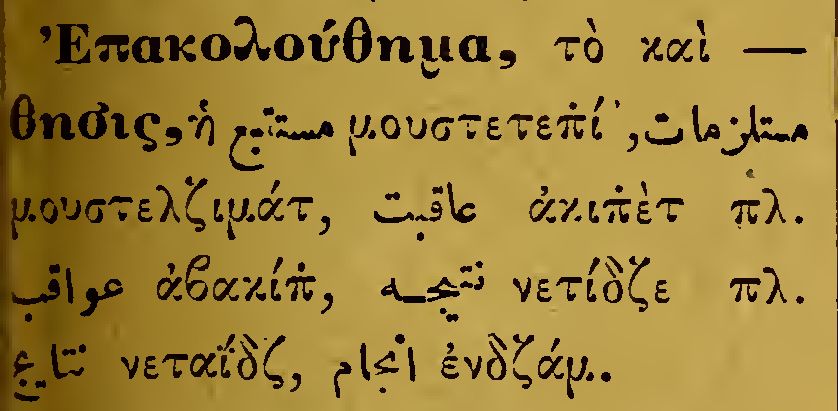 Ἐπακολούθημα, τὸ καὶ —
θησις, ἡ مستتبع μουστετεπ̇ί, مستلزمات
μουστελζιμάτ, عاقبت ἀκιπ̇ὲτ πλ.
عواقب ἀβακίπ̇, نتیجه νετίδζε πλ.
نتایج νεταΐδζ, انجام ἐνδζάμ..